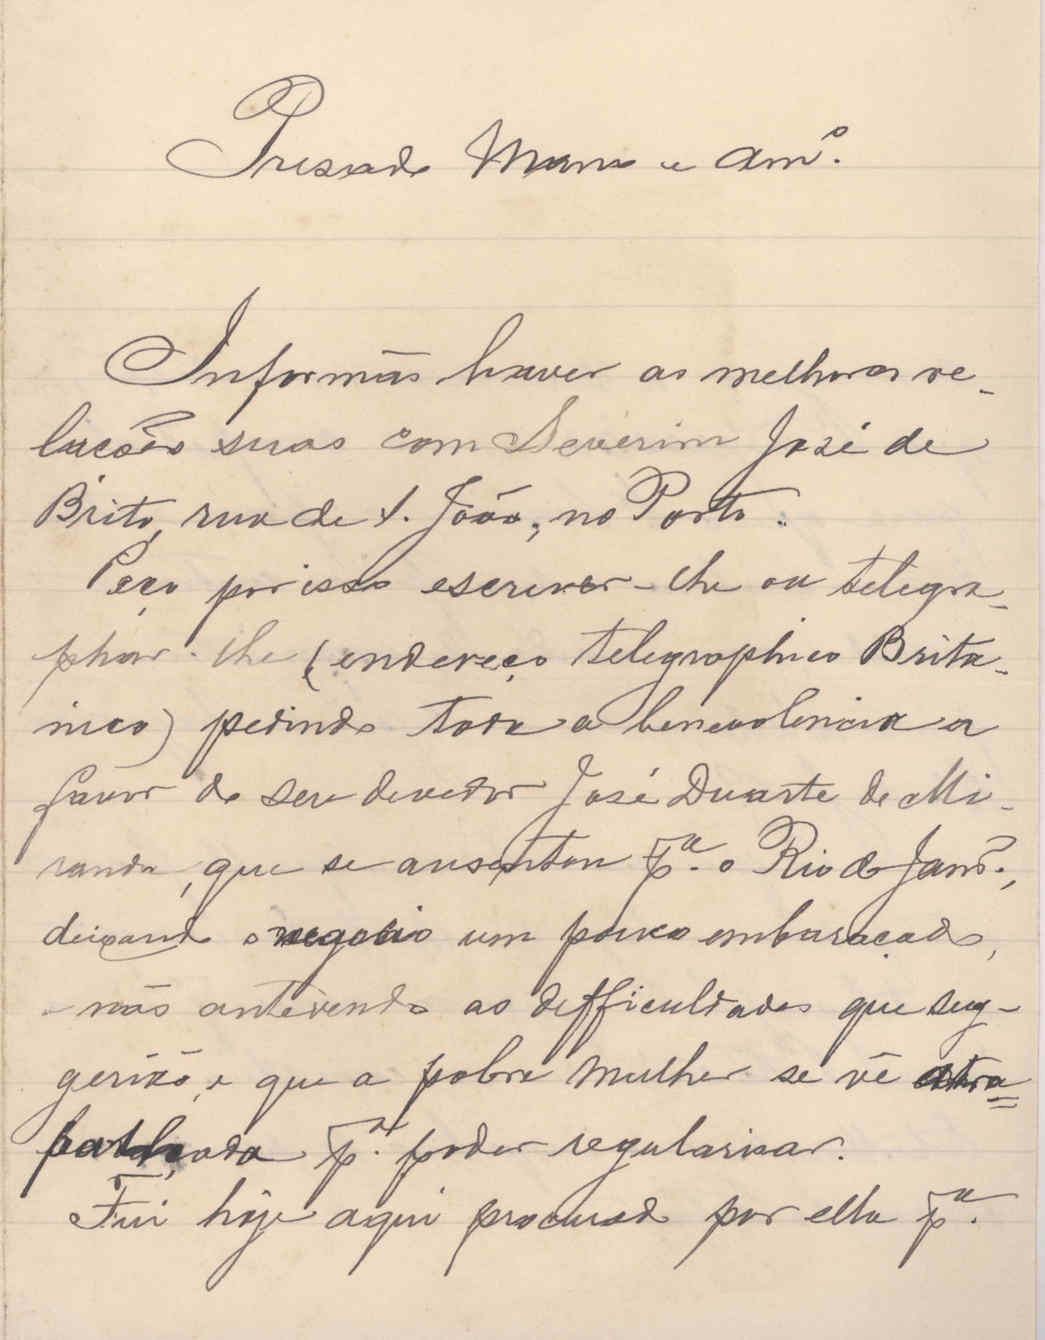 Presado Mano e Am.º
Informão haver as melhores re-
lações suas com Severim José de
Brito, rua de S. João, no Porto.
Peço por isso escrever-lhe ou telegra-
phar-lhe (endereço telegraphico Brita-
nico) pedindo toda a benevolencia a
favor do seu devedor José Duarte de Mi-
randa, que se ausentou p.ª o Rio de Janr.º,
deixando o negocio um pouco embaraçado,
não antevendo as difficuldades que sug-
gerião, e que a pobre mulher se vê atra-
palhada p.ª poder regularisar.
Fui hoje aqui procurado por ella p.ª